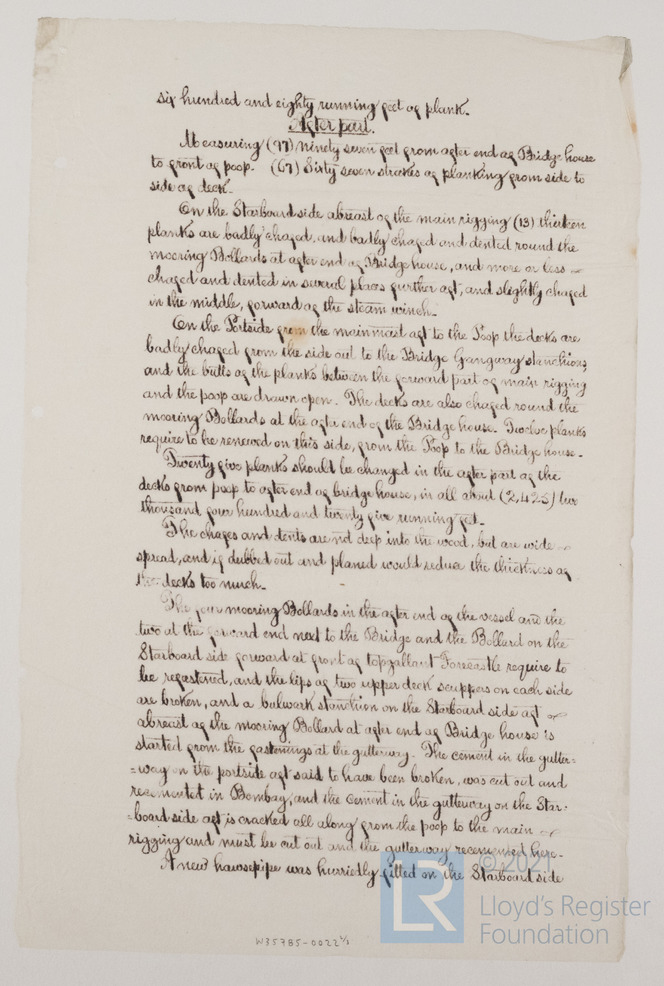 six hundred and eighty running feet of plank.
After part.
Measuring (97) ninety seven feet from after end of Bridge house
to front of poop. (67) Sixty seven strakes of planking from side to
side of deck.
On the Starboard side abreast of the main rigging (13) thirteen
planks are badly chafed, and badly chafed and dented round the
mooring Bollards at after end of Bridge house, and more or less
chafed and dented in several places further aft, and slightly chafed
in the middle, forward of the steam winch.
On the Portside from the mainmast aft to the Poop the decks are
badly chafed from the side out to the Bridge Gangway stanchions
and the butts of the planks between the forward part of main rigging
and the poop are drawn open. The decks are also chafed round the
mooring Bollards at the after end of the Bridge house. Twelve planks
require to be renewed on this side, from the Poop to the Bridge house.
Twenty five planks should be changed in the after part of the
decks from poop to after end of bridge house, in all about (2,425) two
thousand four hundred and twenty five running feet.
The chafes and dents are not deep into the wood, but are wide
spread, and if dubbed out and planed would reduce the thickness of
the decks too much.
The four mooring Bollards in the after end of the vessel and the
two at the forward end next to the Bridge and the Bollard on the
Starboard side forward at front of topgallant Forecastle require to
be refastened, and the lips of two upper deck scuppers on each side
are broken, and a bulwark stanchion on the Starboard side aft
abreast of the mooring Bollard at after end of Bridge house is
started from the fastenings at the gutterway. The cement in the gutter=
=way on the portside aft said to have been broken, was cut out and
recemented in Bombay, and the cement in the gutterway on the Star=
=board side aft is cracked all along from the poop to the main
rigging and must be cut out and the gutterway recemented here.
A new hawsepipe was hurriedly fitted on the Starboard side
W35785-0022 1/3
LR
Lloyd's Register
Foundation